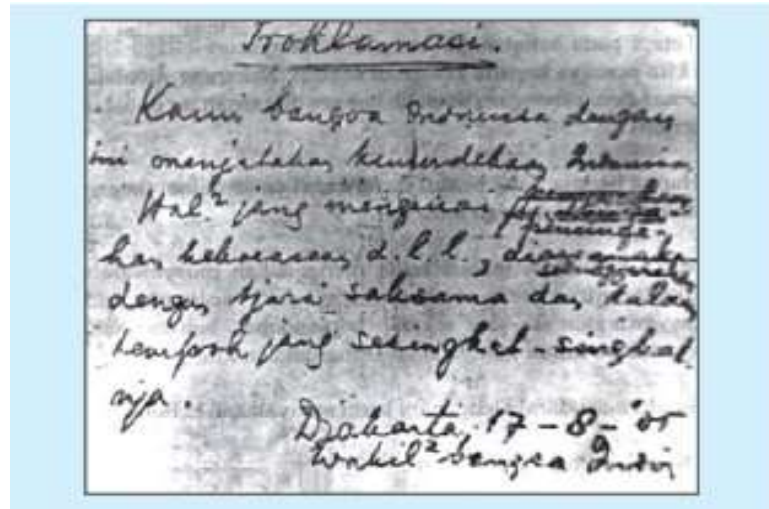 Proklamasi.
Kami bangsa Indonesia dengan
ini menjatakan kemerdekaan Indonesia
Hal² jang mengenai
peminda-
han kekoeasaan, d.l.l.,
diselenggarakan
dengan tjara saksama dan dalam
tempoh jang sesingkat-singkat
nja.
Djakarta, 17 - 8 - '05
Wakil² bangsa Indon